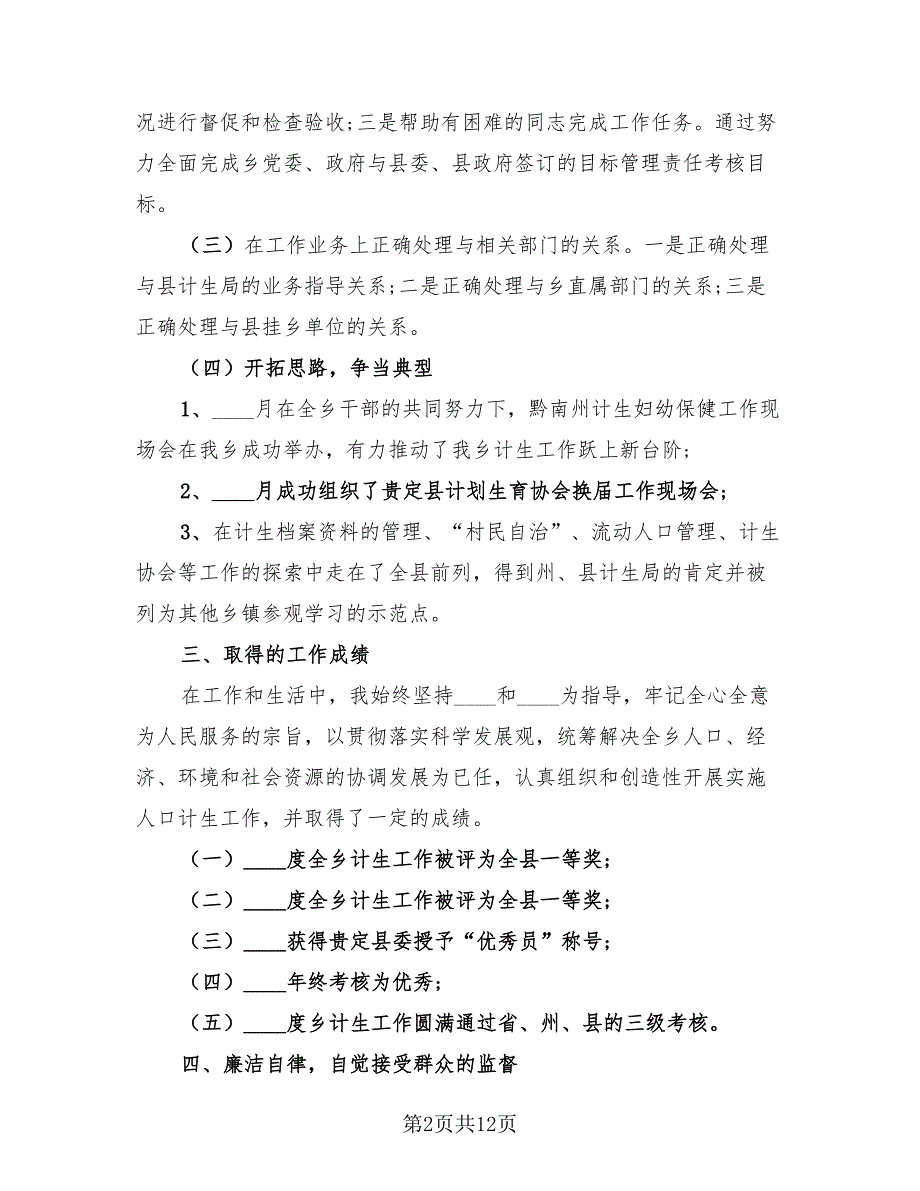 况进行督促和检查验收;三是帮助有困难的同志完成工作任务。通过努
力全面完成乡党委、政府与县委、县政府签订的目标管理责任考核目
标。
（三）在工作业务上正确处理与相关部门的关系。一是正确处理
与县计生局的业务指导关系;二是正确处理与乡直属部门的关系;三是
正确处理与县挂乡单位的关系。
（四）开拓思路，争当典型
1、____月在全乡干部的共同努力下，黔南州计生妇幼保健工作现
场会在我乡成功举办，有力推动了我乡计生工作跃上新台阶;
2、____月成功组织了贵定县计划生育协会换届工作现场会;
3、在计生档案资料的管理、“村民自治”、流动人口管理、计生
协会等工作的探索中走在了全县前列，得到州、县计生局的肯定并被
列为其他乡镇参观学习的示范点。
三、取得的工作成绩
在工作和生活中，我始终坚持____和____为指导，牢记全心全意
为人民服务的宗旨，以贯彻落实科学发展观，统筹解决全乡人口、经
济、环境和社会资源的协调发展为已任，认真组织和创造性开展实施
人口计生工作，并取得了一定的成绩。
（一）____度全乡计生工作被评为全县一等奖;
（二）____度全乡计生工作被评为全县一等奖;
（三）____获得贵定县委授予“优秀员”称号;
（四）____年终考核为优秀;
（五）____度乡计生工作圆满通过省、州、县的三级考核。
四、廉洁自律，自觉接受群众的监督
第2页共12页